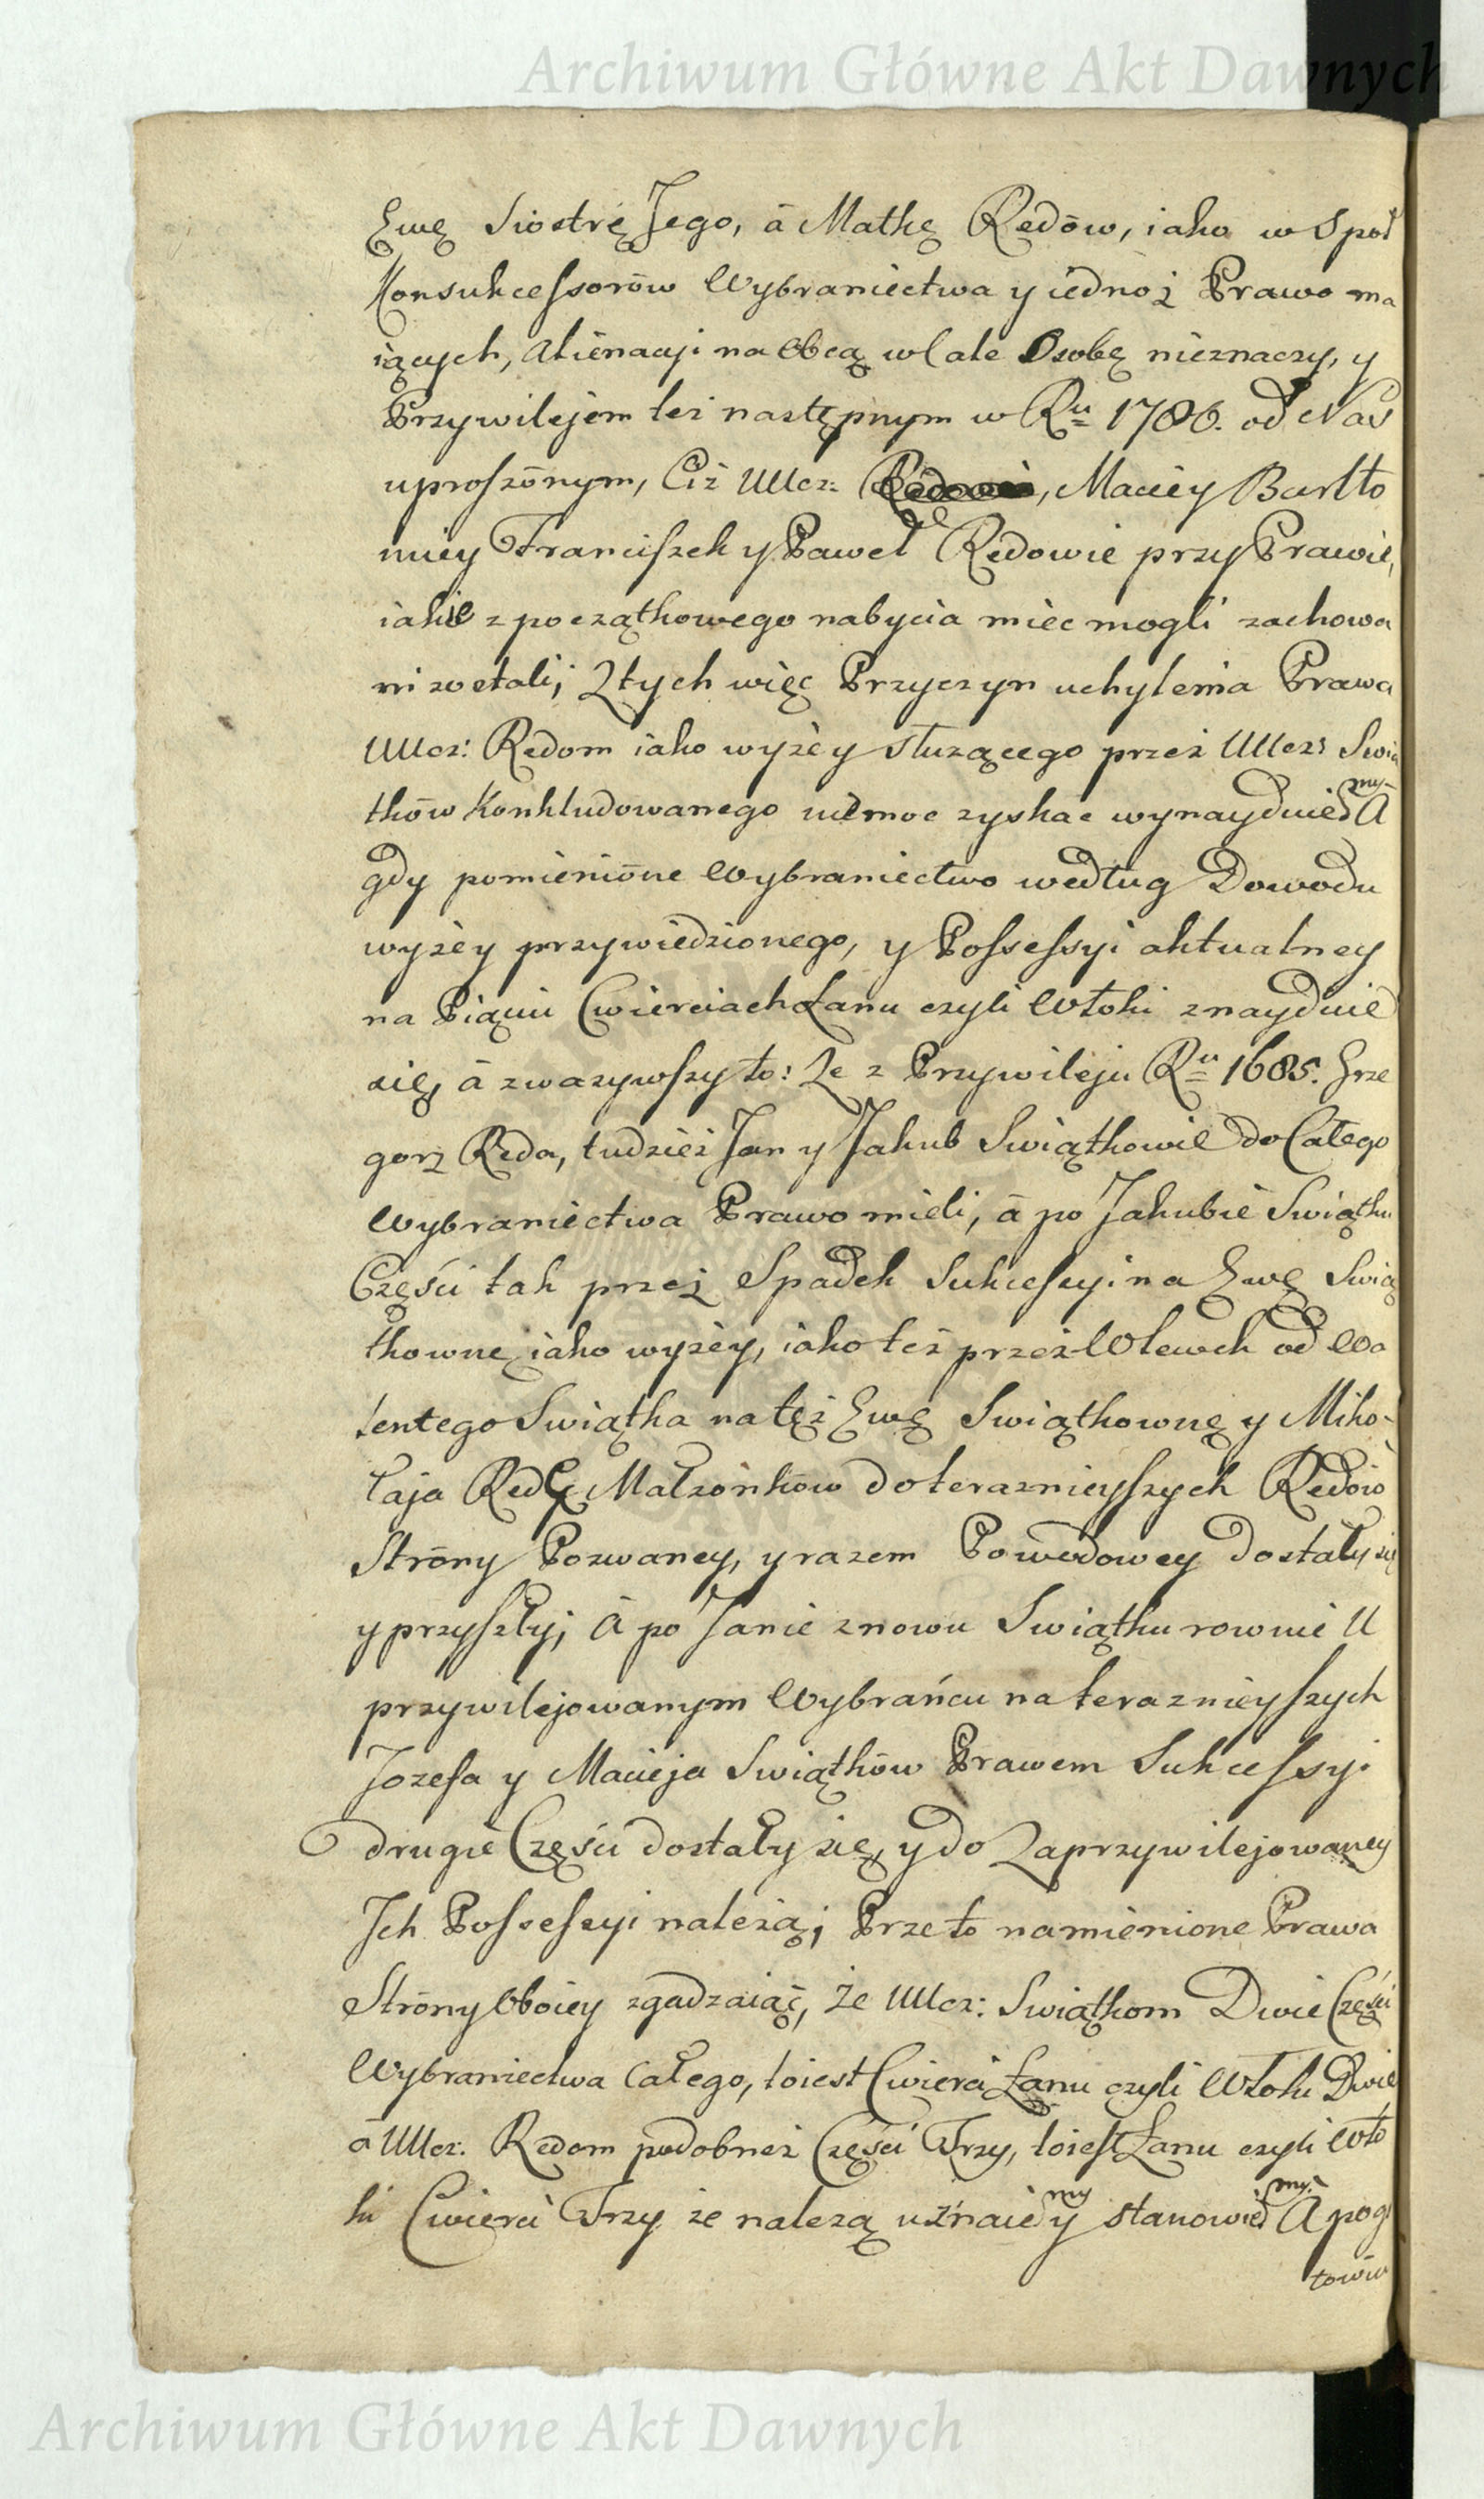 Archiwum Główne Akt Dawnych
Ewę Siostrę Jego, â Matkę Redōw, iako w Społ
Konsukcessorōw Wybraniectwa y iednoż Prawo ma
iących, alienacyi na Obcą wcale Osobę nieznaczy, y
Przywilejem też następnym w Ru 1786. od Nas
uproszōnym, Ciż UUcz: Redowie, Maciey Bartło
miey Franciszek y Paweł Redowie przy Prawie,
iakie z początkowego nabycia miec mogli zachowa
ni zostali; Z tych więc Przyczyn uchylenia Prawa
UUcz: Redom iako wyżey służącego przez UUcz: Swią
tkōw Konkludowanego niemoc zyskac wynayduiemy A
gdy pomieniōne Wybraniectwo według Dowodu
wyżey przywiedzionego, y Possessyi aktualney
na Piąciu Cwierciach Łanu czyli Włoki znayduie
się, â zważywszy to: Że z Przywileju Ru 1685. Grze
gorz Reda, tudzież Jan y Jakub Swiątkowie do Całego
Wybraniectwa Prawo mieli, â po Jakubie Swiątku
Części tak przez Spadek Sukcessyi na Ewę Swią
tkownę iako wyżey, iako też przez Wlewek od Wa
lentego Swiątka na tęż Ewę Swiątkownę y Miko-
łaja Redę Małżonkōw do teraznieyszych Redōw
Strōny Pozwaney, y razem Powodowey dostały się
y przyszły; A po Janie znowu Swiątku rownie U
przywilejowanym Wybrańcu na teraznieyszych
Jozefa y Macieja Swiątkōw Prawem Sukcessyi
drugie Części dostały się, y do Zaprzywilejowaney
Ich Possessyi należą; Przeto namienione Prawa
Strōny Oboiey zgadzaiąc, że UUcz: Swiątkom Dwie Części
Wybraniectwa Całego, toiest Cwierci Łanu czyli Włoki Dwie
â UUcz: Redom podobnież Części Trzy, toiest Łanu czyli Wło
ki Cwierci Trzy że należą uznaiemy y stanowiemy. A pog
towiu
Archiwum Główne Akt Dawnych